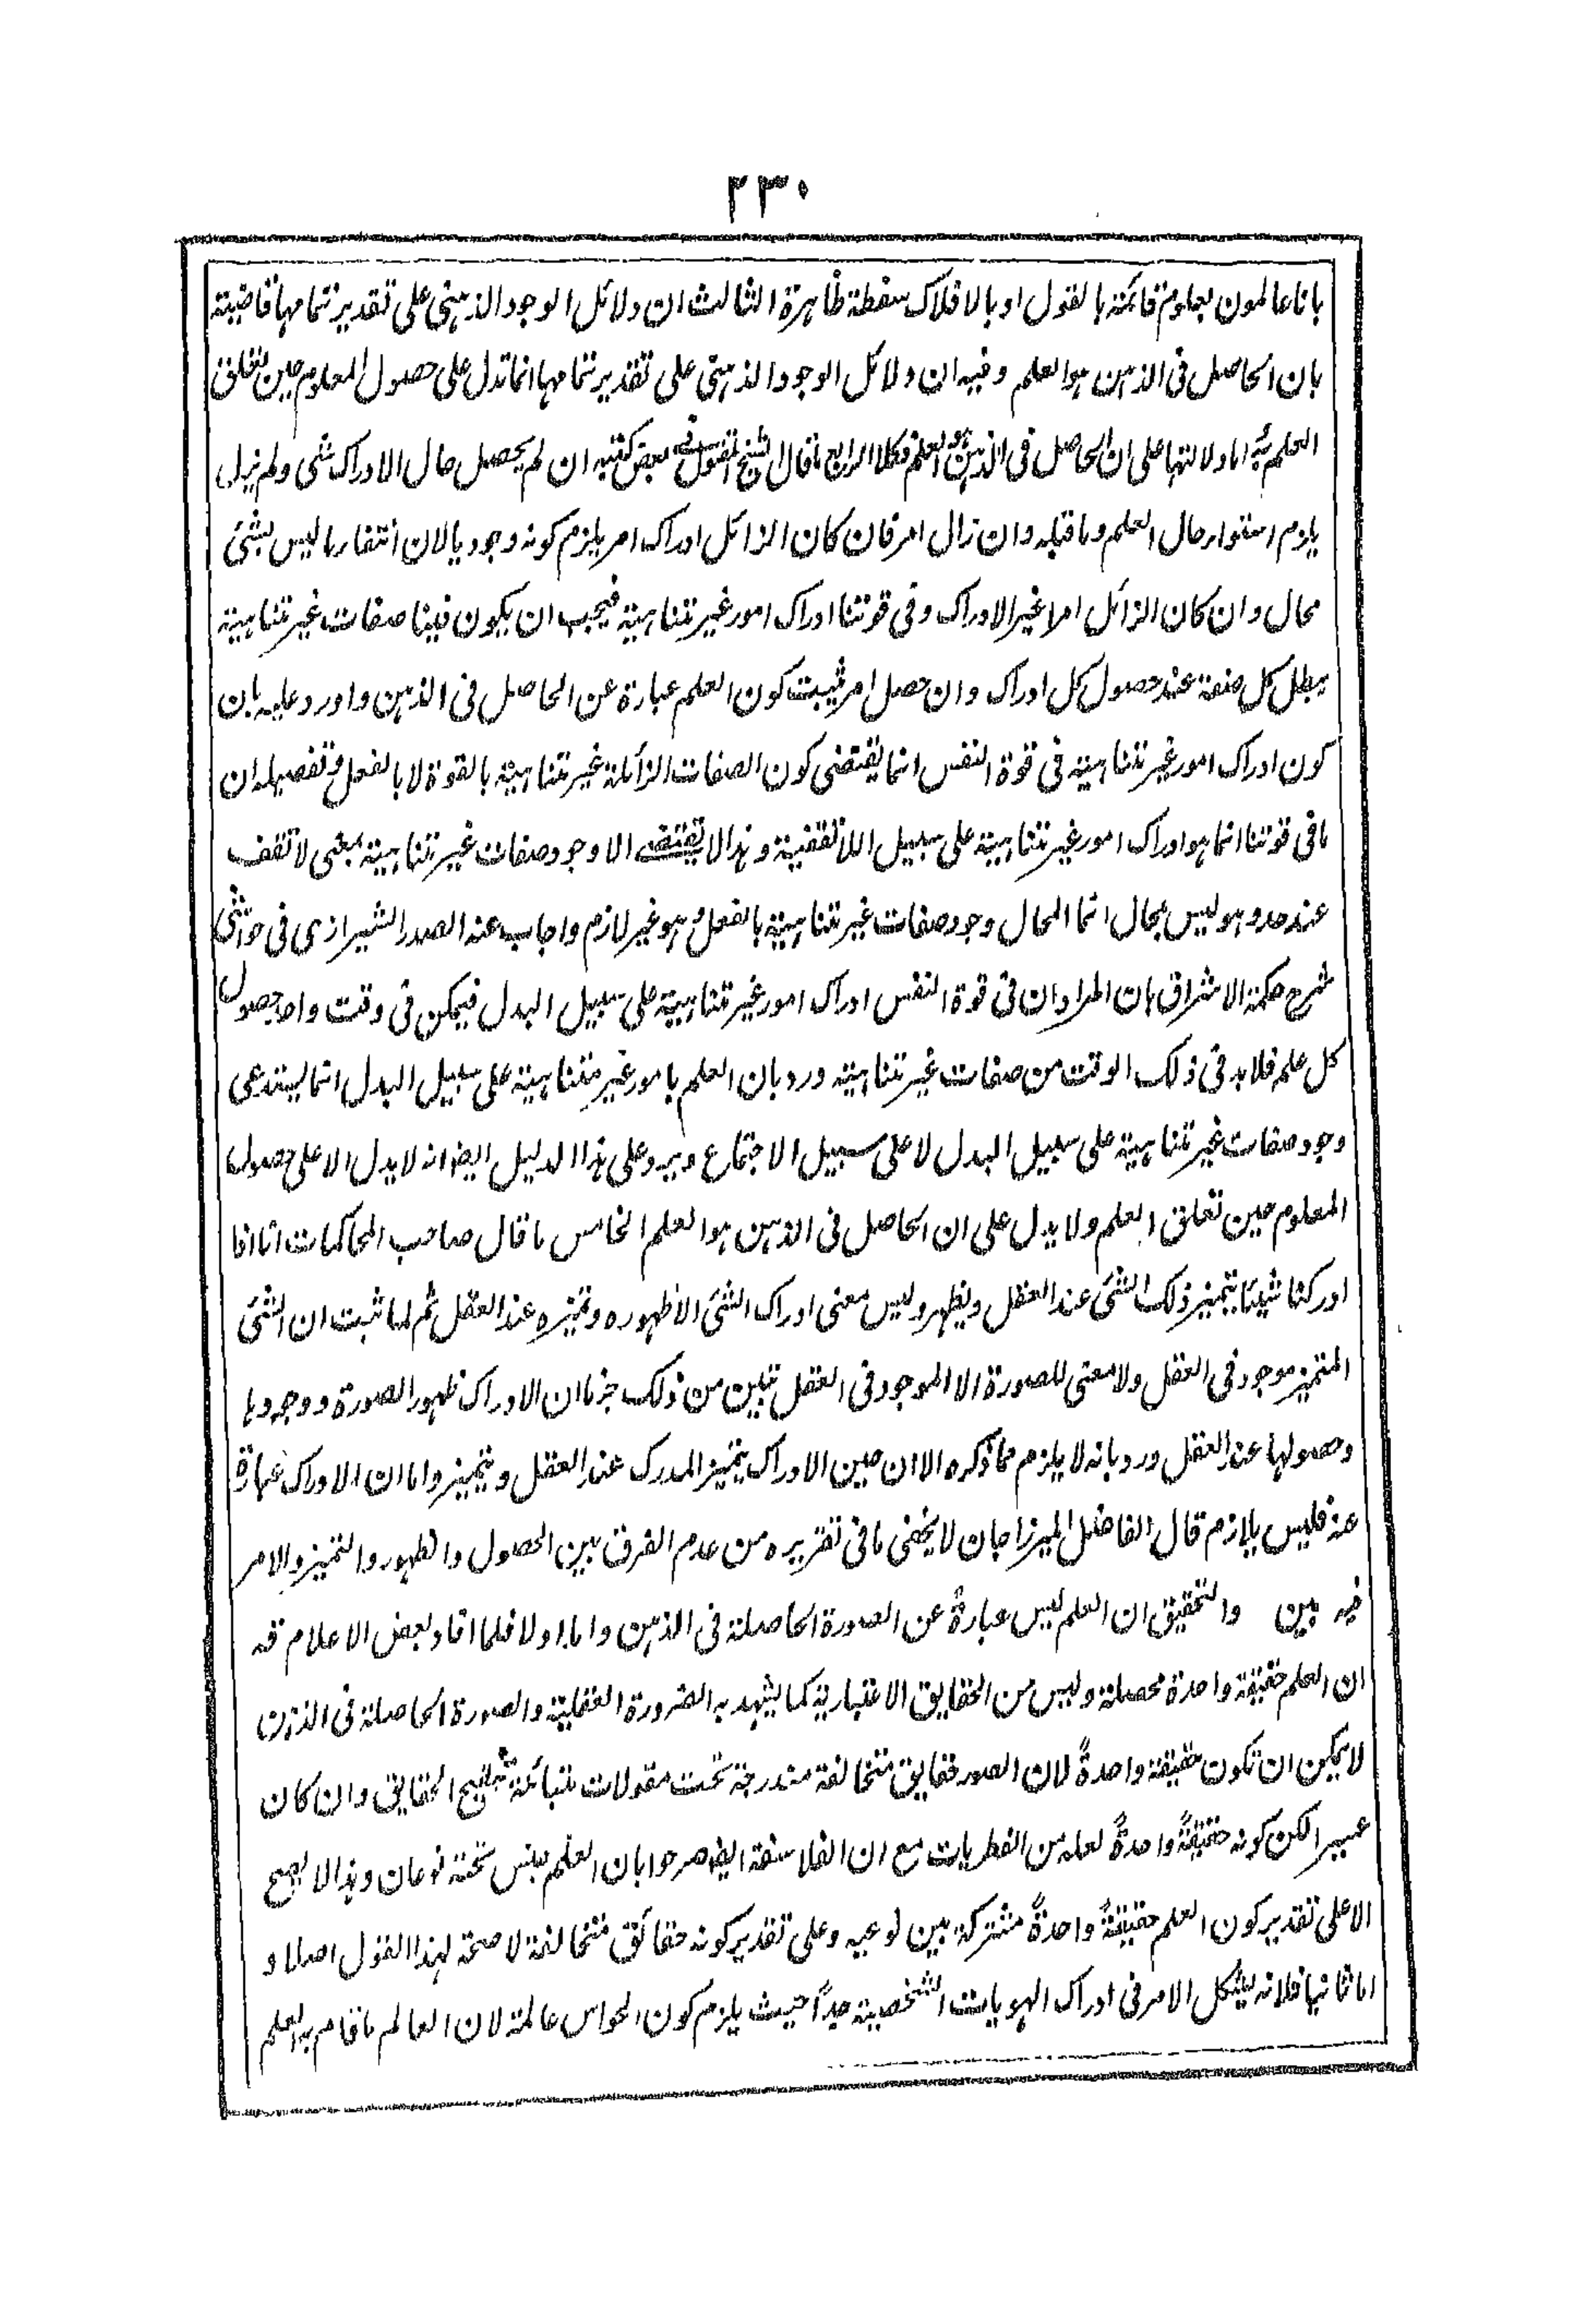 ٢٣٠
بانا عالمون بعلوم قائمة بالقول او بالافلاك سفسطة ظاهرة الثالث ان دلائل الوجود الذهني على تقدير تمامها قاضية
بان الحاصل في الذهن هو العلم وفيه ان دلائل الوجود الذهني على تقدير تمامها انما تدل على حصول المعلوم حين تعلق
العلم به اما دلالتها على ان الحاصل في الذهن هو العلم فكلا الرابع ما قال الشيخ المقتول في بعض كتبه ان لم يحصل حال الادراك شئ ولم يزل
يلزم استواء حال العلم وما قبله وان زال امر فان كان الزائل ادراك امر يلزم كونه وجوديا لان انتفاء ما ليس بشئ
محال وان كان الزائل امرا غير الادراك وفي قوتنا ادراك امور غير متناهية فيجب ان يكون فينا صفات غير متناهية
يبطل كل صفة عند حصول كل ادراك وان حصل امر ثبت كون العلم عبارة عن الحاصل في الذهن واورد عليه بان
كون ادراك امور غير متناهية في قوة النفس انما يقتضي كون الصفات الزائلة غير متناهية بالقوة لا بالفعل وتفصيله ان
ما في قوتنا انما هو ادراك امور غير متناهية على سبيل اللاتقفية وهذا لا يقتضي الا وجود صفات غير متناهية بمعنى لا تقف
عند حد وهو ليس بمحال انما المحال وجود صفات غير متناهية بالفعل وهو غير لازم واجاب عنه الصدر الشيرازي في حواشي
شرح حكمة الاشراق بان المراد ان في قوة النفس ادراك امور غير متناهية على سبيل البدل فيمكن في وقت واحد حصول
كل علم فلابد في ذلك الوقت من صفات غير متناهية ورد بان العلم بامور غير متناهية على سبيل البدل انما يستدعي
وجود صفات غير متناهية على سبيل البدل لا على سبيل الاجتماع ويرد على هذا الدليل ايضا انه لا يدل الا على حصول
المعلوم حين تعلق العلم ولا يدل على ان الحاصل في الذهن هو العلم الخامس ما قال صاحب المحاكمات انا اذا
ادركنا شيئا يتميز ذلك الشئ عند العقل ويظهر وليس معنى ادراك الشئ الا ظهوره وتميزه عند العقل ثم لما ثبت ان الشئ
المتميز موجود في العقل ولا معنى للصورة الا الموجود في العقل تبين من ذلك جزما ان الادراك ظهور الصورة ووجودها
وحصولها عند العقل ورد بانه لا يلزم مما ذكره الا ان حين الادراك يتميز المدرك عند العقل ويتميز واما ان الادراك عبارة
عنه فليس بلازم قال الفاضل الميرزا جان لا يخفى ما في تقريره من عدم الفرق بين الحصول والظهور والتميز والامر
فيه بين والتحقيق ان العلم ليس عبارة عن الصورة الحاصلة في الذهن واما اولا فلما افاد بعض الاعلام قه
ان العلم حقيقة واحدة محصلة وليس من الحقايق الاعتبارية كما يشهد به الضرورة العقلية والصورة الحاصلة في الذهن
لا يمكن ان تكون حقيقة واحدة لان الصور حقايق متخالفة مندرجة تحت مقولات متبائنة الحقايق وان كان
عسيرا لكن كونه حقيقة واحدة لعله من الفطريات مع ان الفلاسفة ايضا صرحوا بان العلم جنس تحته نوعان وهذا لا يصح
الا على تقدير كون العلم حقيقة واحدة مشتركة بين نوعيه وعلى تقدير كونه حقائق متخالفة لا صحة لهذا القول اصلا و
اما ثانيا فلانه يشكل الامر في ادراك الهويات الشخصية جدا حيث يلزم كون الحواس عالمة لان العالم ما قام به العلم